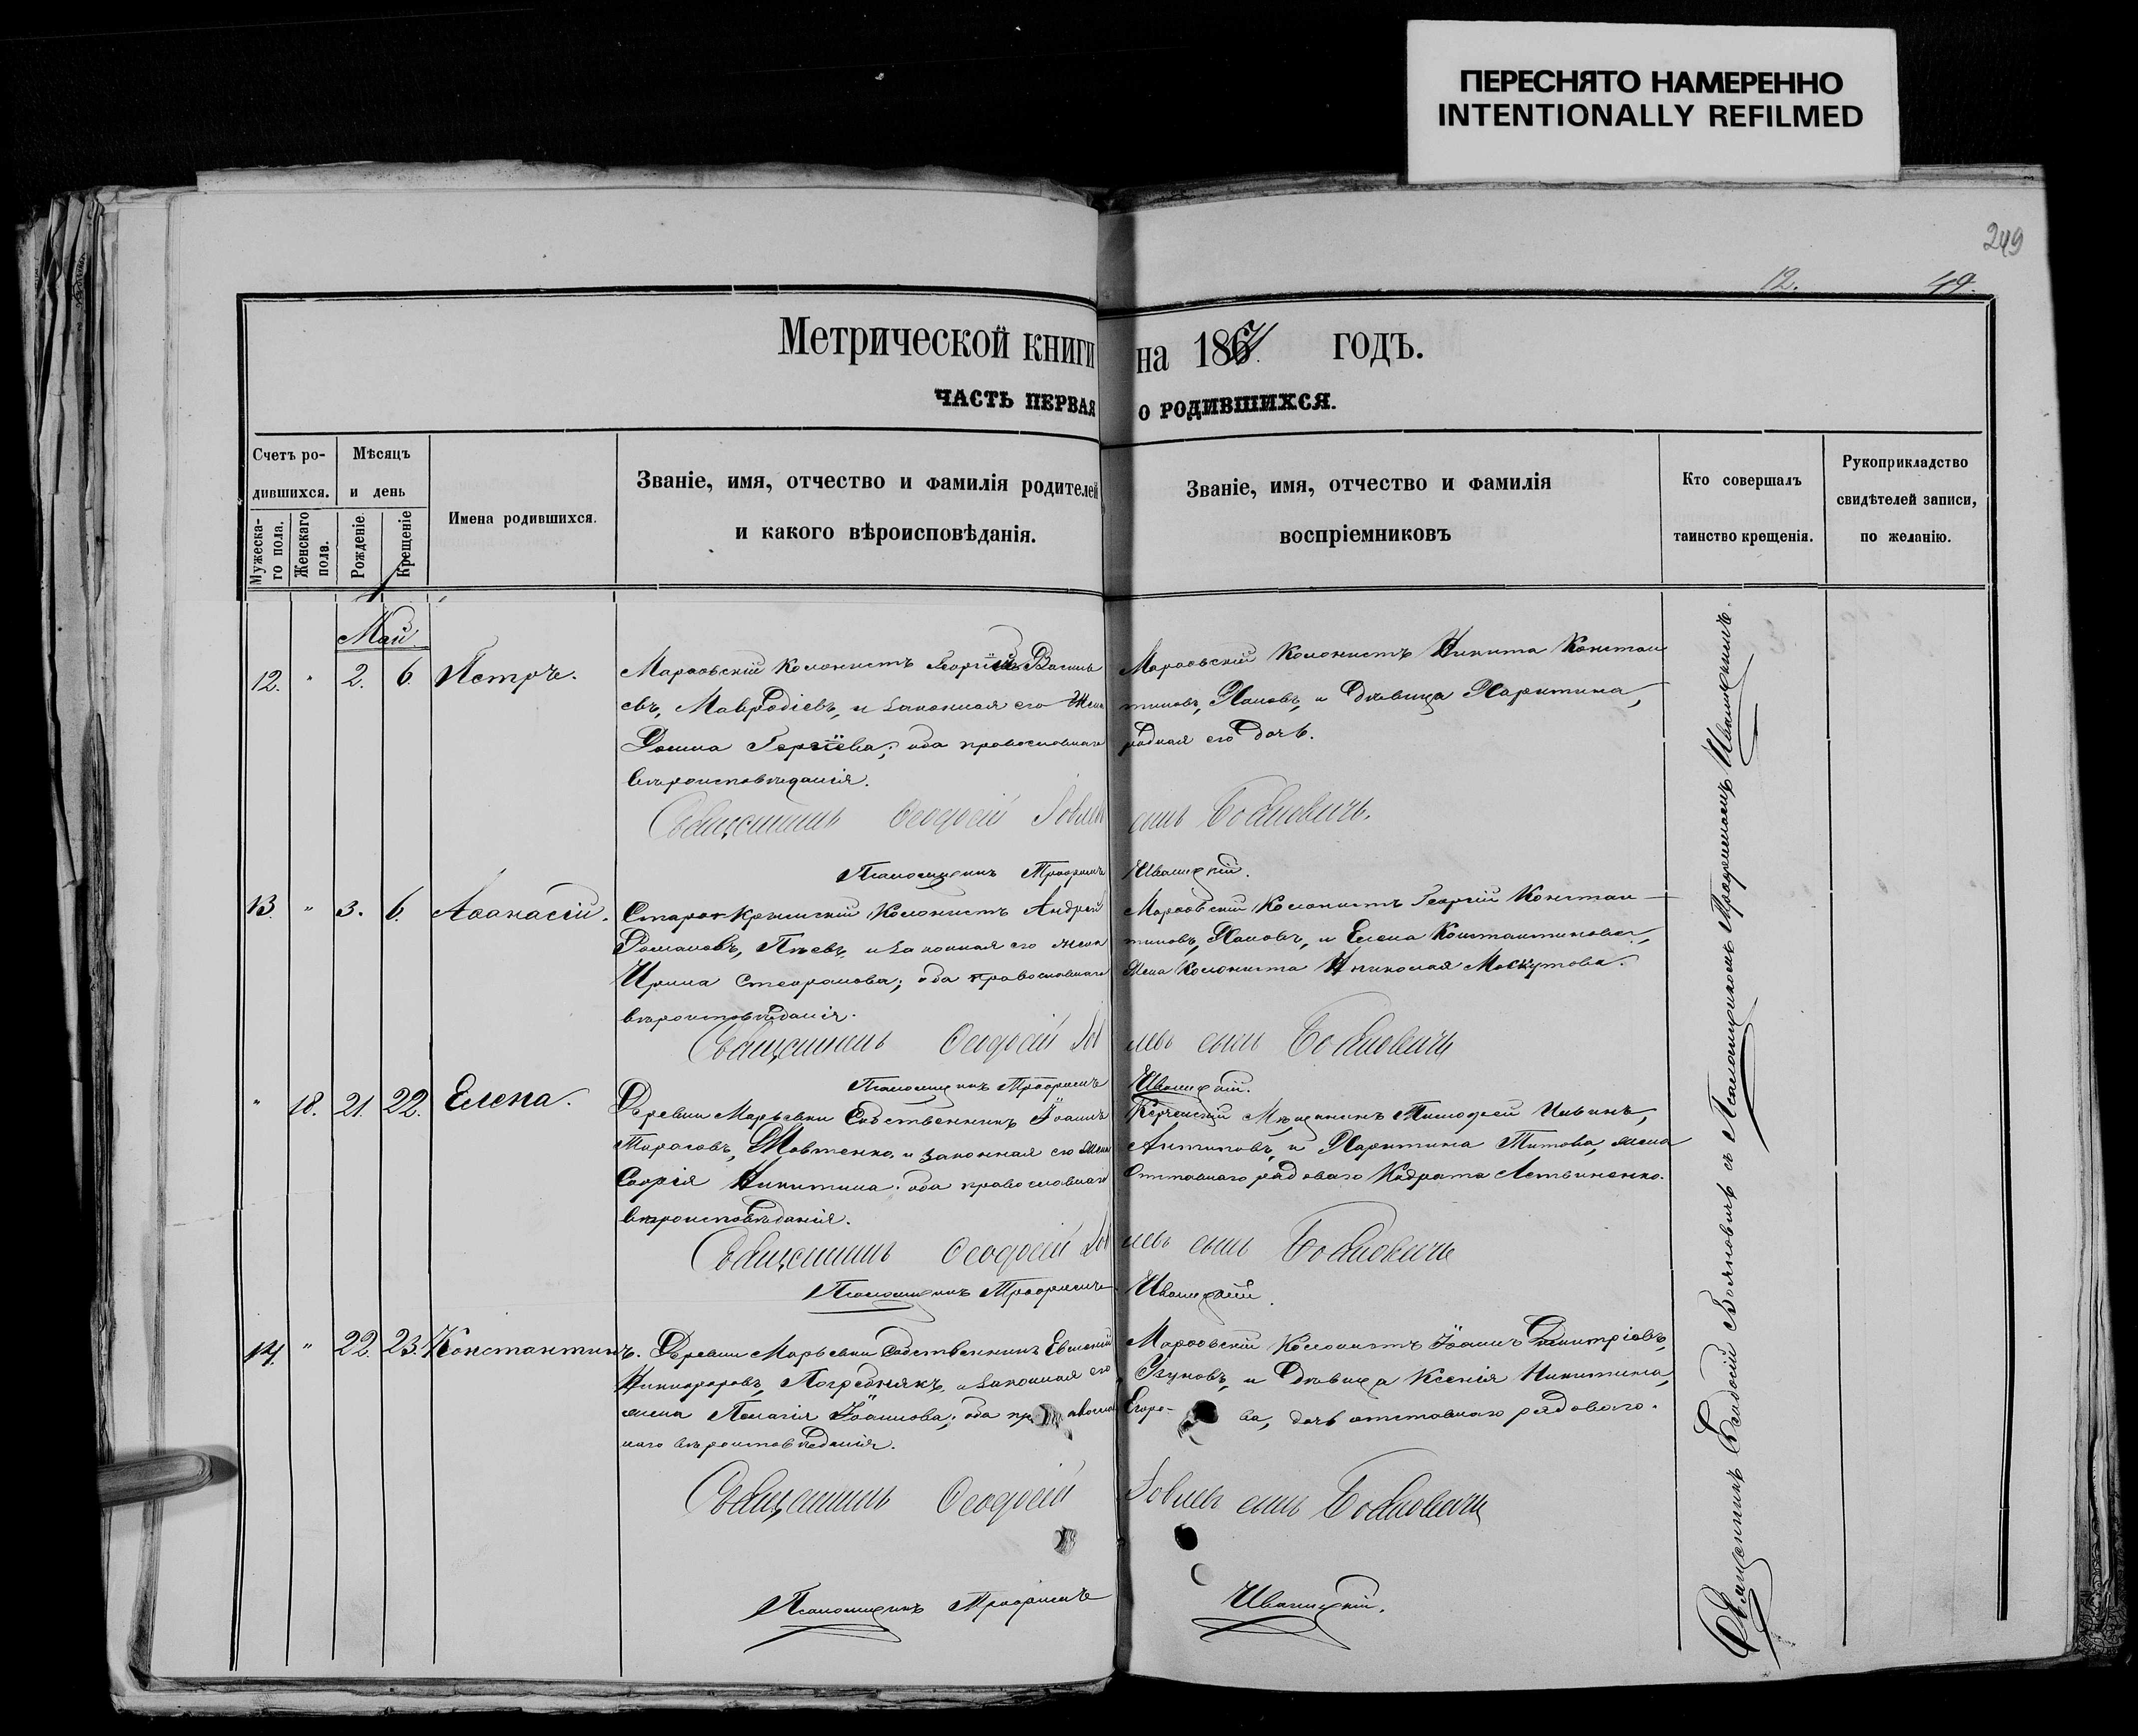 ПЕРЕСНЯТО НАМЕРЕННО
INTENTIONALLY REFILMED
249
12.
49.
Метрической книги на 1867. годъ.
ЧАСТЬ ПЕРВАЯ О РОДИВШИХСЯ.
Счетъ ро-
дившихся.
Мужеска-
го пола.
Женскаго
пола.
Мѣсяцъ
и день
Рожденіе.
Крещеніе
Имена родившихся.
Званіе, имя, отчество и фамилія родителей
и какого вѣроисповѣданія.
Званіе, имя, отчество и фамилія
воспріемниковъ
Кто совершалъ
таинство крещенія.
Рукоприкладство
свидѣтелей записи,
по желанію.
Май.
12. " 2. 6. Петръ.
Марфовскій колонистъ Георгій Василь
евъ, Мавродіевъ, и законная его жена
Домна Георгіева; оба православнаго
вѣроисповѣданія.
Марфовскій колонистъ Никита Констан
тиновъ, Пановъ, и Дѣвица Харитина,
родная его дочь.
Священникъ Ѳеодосій Іовлевъ сынъ Бояновичъ.
Псаломщикъ Трофимъ Иваницкій.
13. " 3. 6. Аѳанасій.
Старо-Крымскій колонистъ Андрей
Романовъ, и законная его жена
Ирина Стефанова; оба православнаго
вѣроисповѣданія.
Марфовскій колонистъ Георгій Констан-
тиновъ, Пановъ, и Елена Константинова,
жена колониста Николая
Священникъ Ѳеодосій Іовлевъ сынъ Бояновичъ
Псаломщикъ Трофимъ Иваницкій.
" 18. 21. 22. Елена.
Деревни Марьевки Собственникъ Іоаннъ
Тарасовъ, и законная его жена
Софія Никитина; оба православнаго
вѣроисповѣданія.
Керченскій Мѣщанинъ Тимофей
Антиповъ, и Харитина Титова, жена
отставнаго рядоваго
Священникъ Ѳеодосій Іовлевъ сынъ Бояновичъ
Псаломщикъ Трофимъ Иваницкій.
14. " 22. 23. Константинъ.
Деревни Марьевки Собственникъ Евгеній
Никифоровъ, Погребнякъ, и законная его
жена Пелагія Іоаннова; оба православ
наго вѣроисповѣданія.
Марфовскій колонистъ Іоаннъ Димитріевъ,
Узуновъ, и Дѣвица Ксенія Никитина,
Егоро- ва, дочь отставнаго рядоваго.
Священникъ Ѳеодосій Іовлевъ сынъ Бояновичъ
Псаломщикъ Трофимъ Иваницкій.
Священникъ Ѳеодосій Бояновичъ съ Псаломщикомъ Трофимомъ Иваницкимъ.